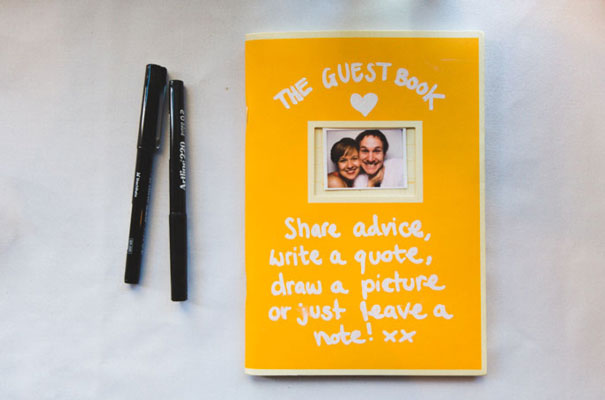 THE GUEST BOOK
Share advice,
write a quote,
draw a picture
or just leave a
note! xx
Artline 200